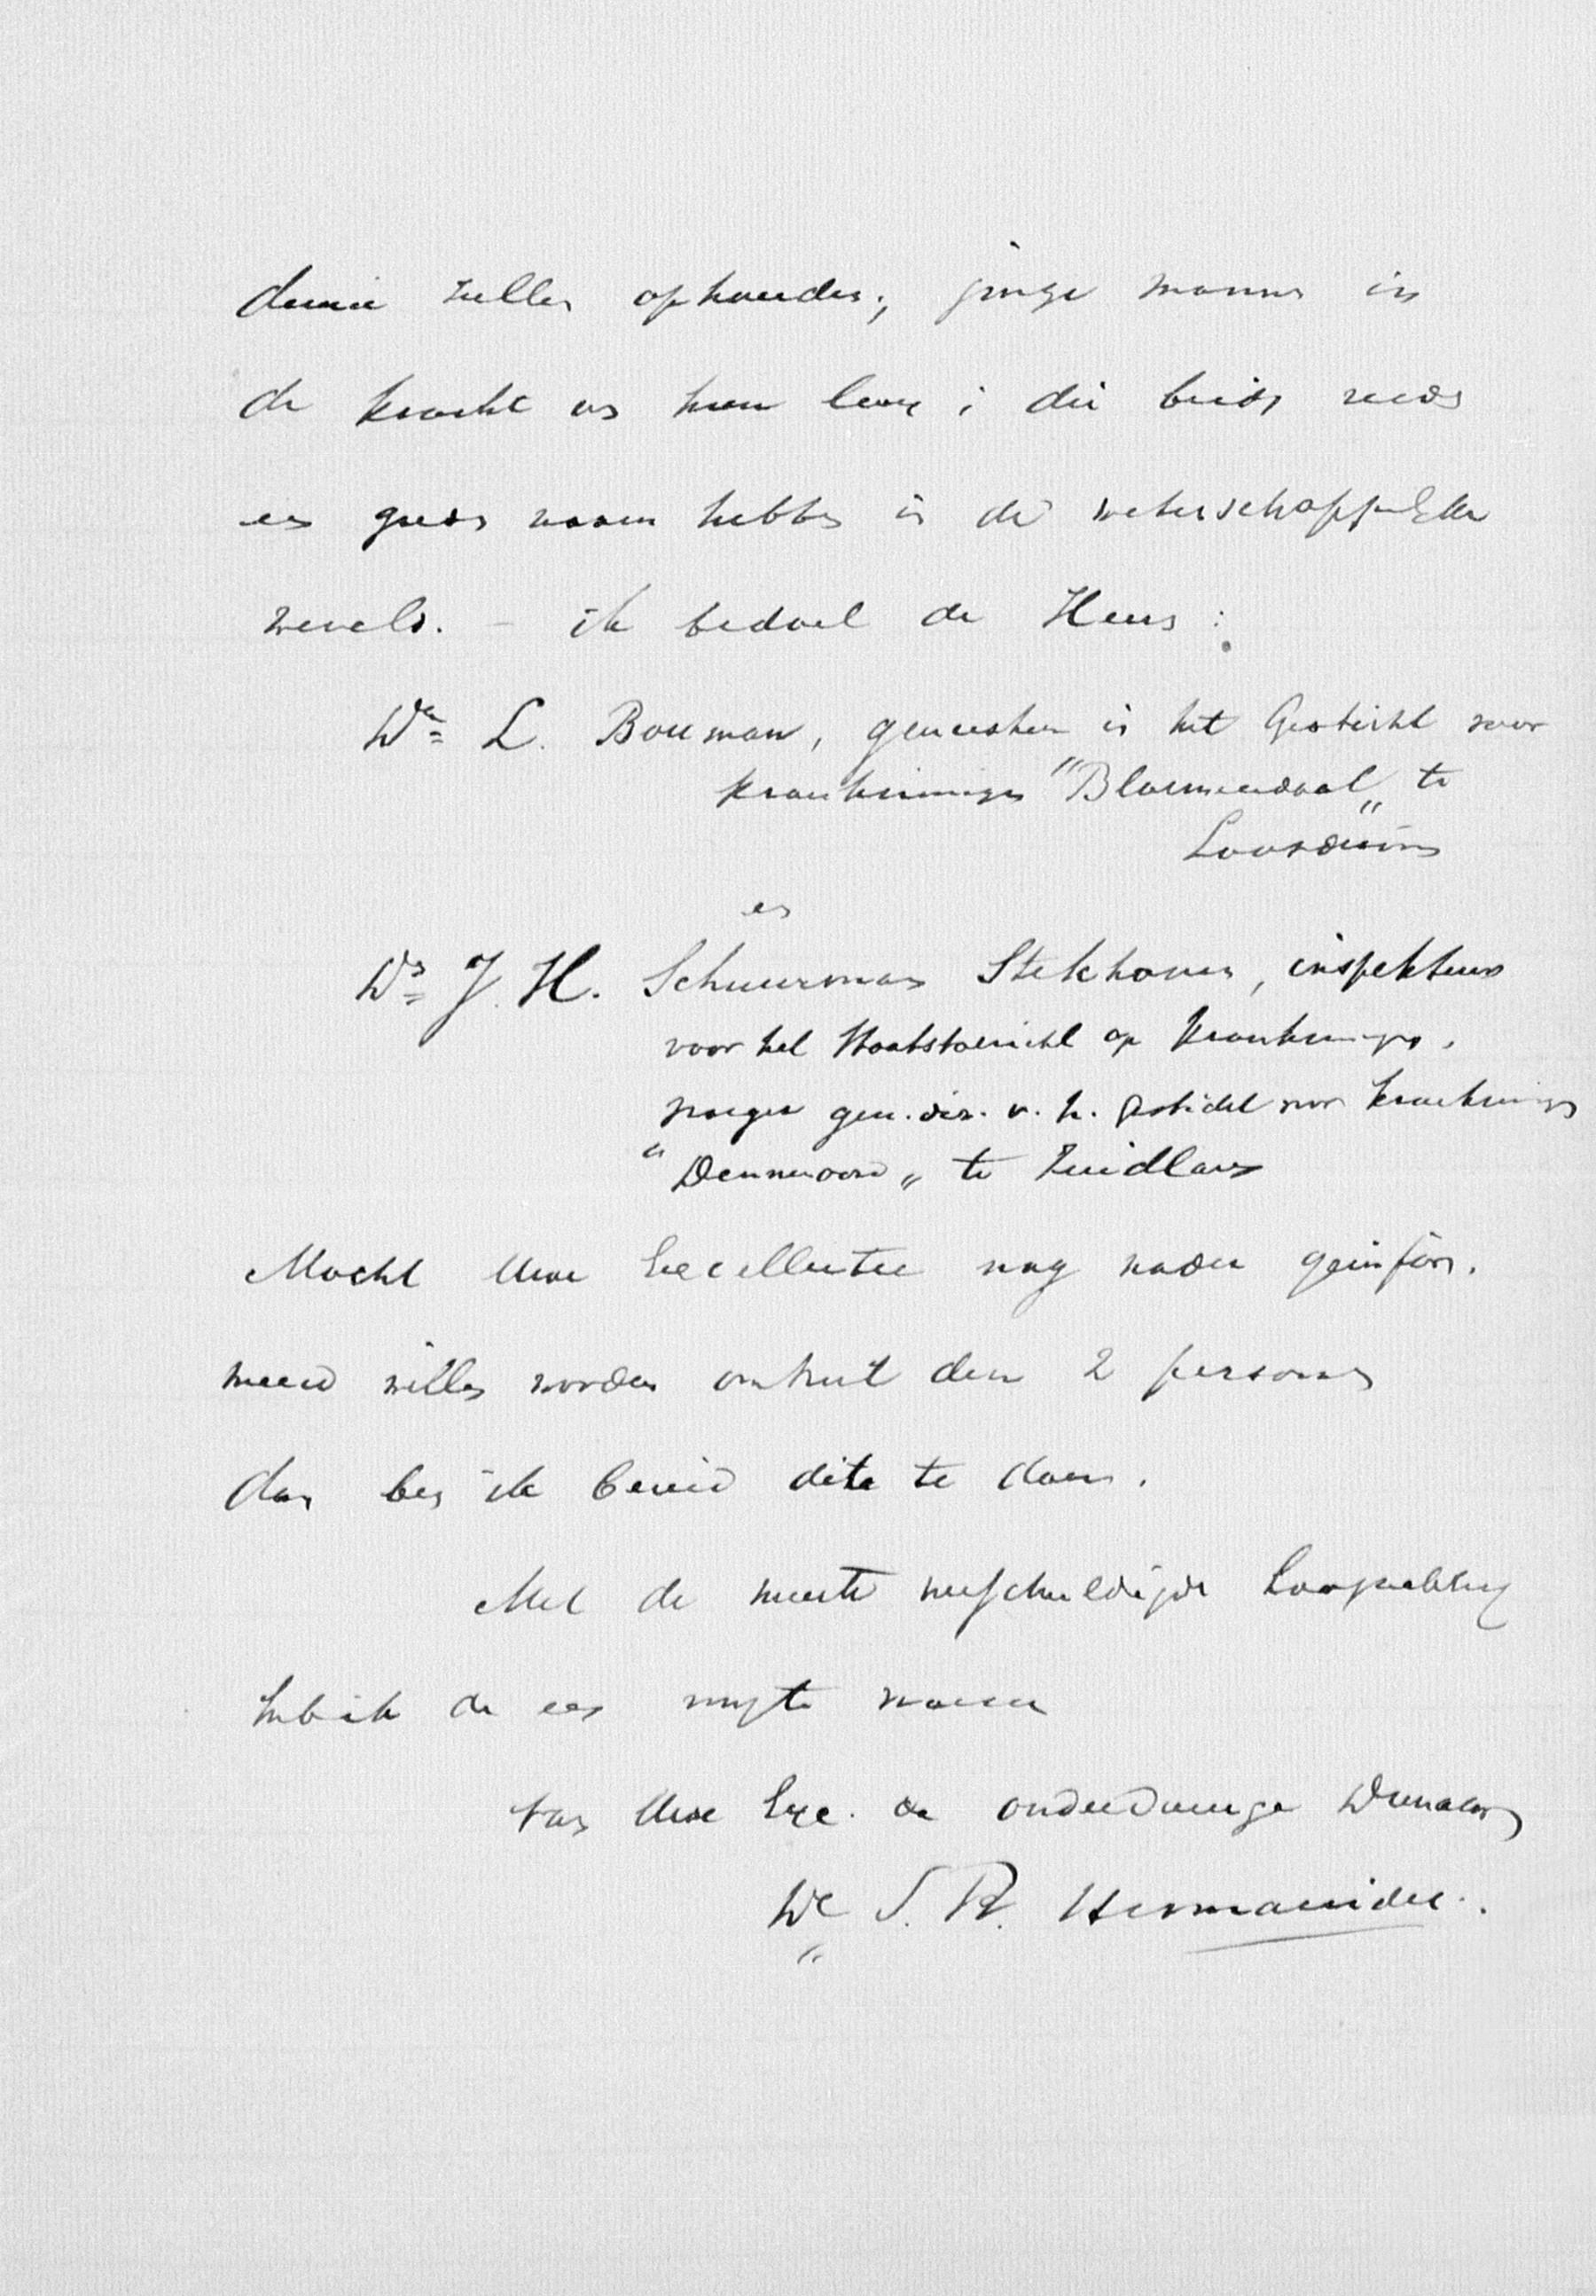 demie zullen ophouden; jonge mannen in
de kracht van hun leven; die beide reeds
een goeden naam hebben in de wetenschappelijke
wereld. – ik bedoel de Heeren:
Dr. L. Bouman, geneesheer in het Gesticht voor
krankzinnigen "Bloemendaal" te
Loosduinen
en
Dr. J. H. Schuurmans Stekhoven, inspekteur
voor het Staatstoezicht op krankzinnigen,
vroeger gen. dir. v. h. gesticht voor krankzinnigen
"Dennenoord" te Zuidlaren
Mocht Uwe Excellentie nog nader geinfor-
meerd willen worden omtrent deze 2 personen
dan ben ik bereid dit te doen.
Met de meeste verschuldigde hoogachting
heb ik de eer mij te noemen
van Uwe Exc. de onderdanige Dienaar
Dr S. R. Hermanides.